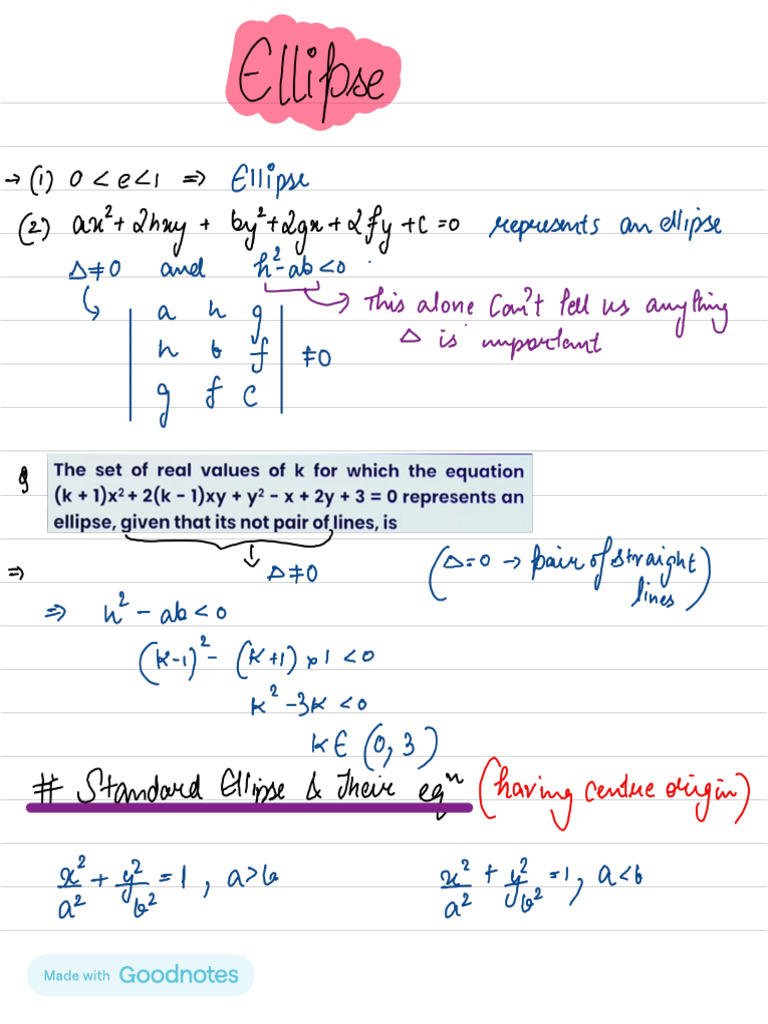 Ellipse
→ (1) 0 < e < 1 ⇒ Ellipse
(2) ax² + 2hxy + by² + 2gx + 2fy + c = 0 represents an ellipse
Δ ≠ 0 and h² - ab < 0 .
This alone Can't tell us anything
Δ is important
a h g
h b f ≠ 0
g f c
Q
The set of real values of k for which the equation
(k + 1)x² + 2(k - 1)xy + y² - x + 2y + 3 = 0 represents an
ellipse, given that its not pair of lines, is
⇒ Δ ≠ 0 (Δ = 0 → pair of straight
lines)
⇒ h² - ab < 0
(k-1)² - (k+1) × 1 < 0
k² - 3k < 0
k ∈ (0, 3)
# Standard Ellipse & Their eqⁿ (having centre origin)
x²/a² + y²/b² = 1, a > b x²/a² + y²/b² = 1, a < b
Made with Goodnotes